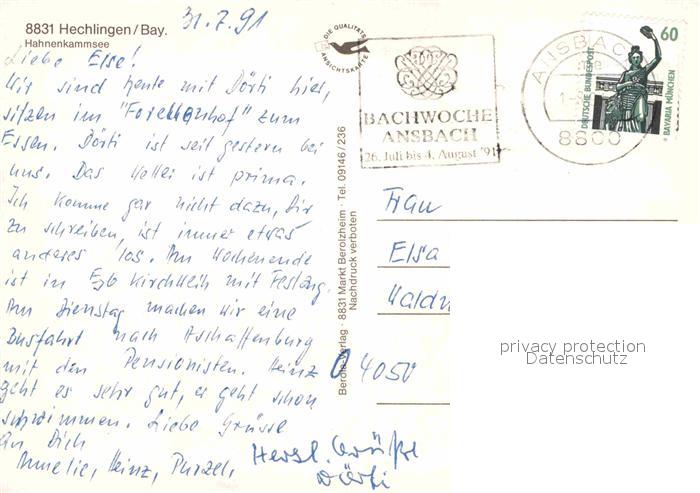 8831 Hechlingen/Bay.
Hahnenkammsee
31.7.91
Liebe Else!
Wir sind heute mit Dörti hier,
sitzen im "Forellenhof" zum
Essen. Dörti ist seit gestern bei
uns. Das Wetter ist prima.
Ich komme gar nicht dazu, Dir
zu schreiben, ist immer etwas
anderes los. Am Wochenende
ist in Kirchweih mit Festzug.
Am Dienstag machen wir eine
Busfahrt nach Aschaffenburg
mit den Pensionisten. Heinz
geht es sehr gut, er geht schon
schwimmen. Liebe Grüsse
An Dich
Amelie, Heinz, Purzel.
Herzl. Grüße
Dörti
DIE QUALITÄTS
ANSICHTSKARTE
Berolin-Verlag · 8831 Markt Berolzheim · Tel. 09146/236
Nachdruck verboten
BACHWOCHE
ANSBACH
26. Juli bis 4. August '91
ANSBACH
8800
60
DEUTSCHE BUNDESPOST
BAVARIA MÜNCHEN
Frau
Elsa
Waldn
4050
privacy protection
Datenschutz